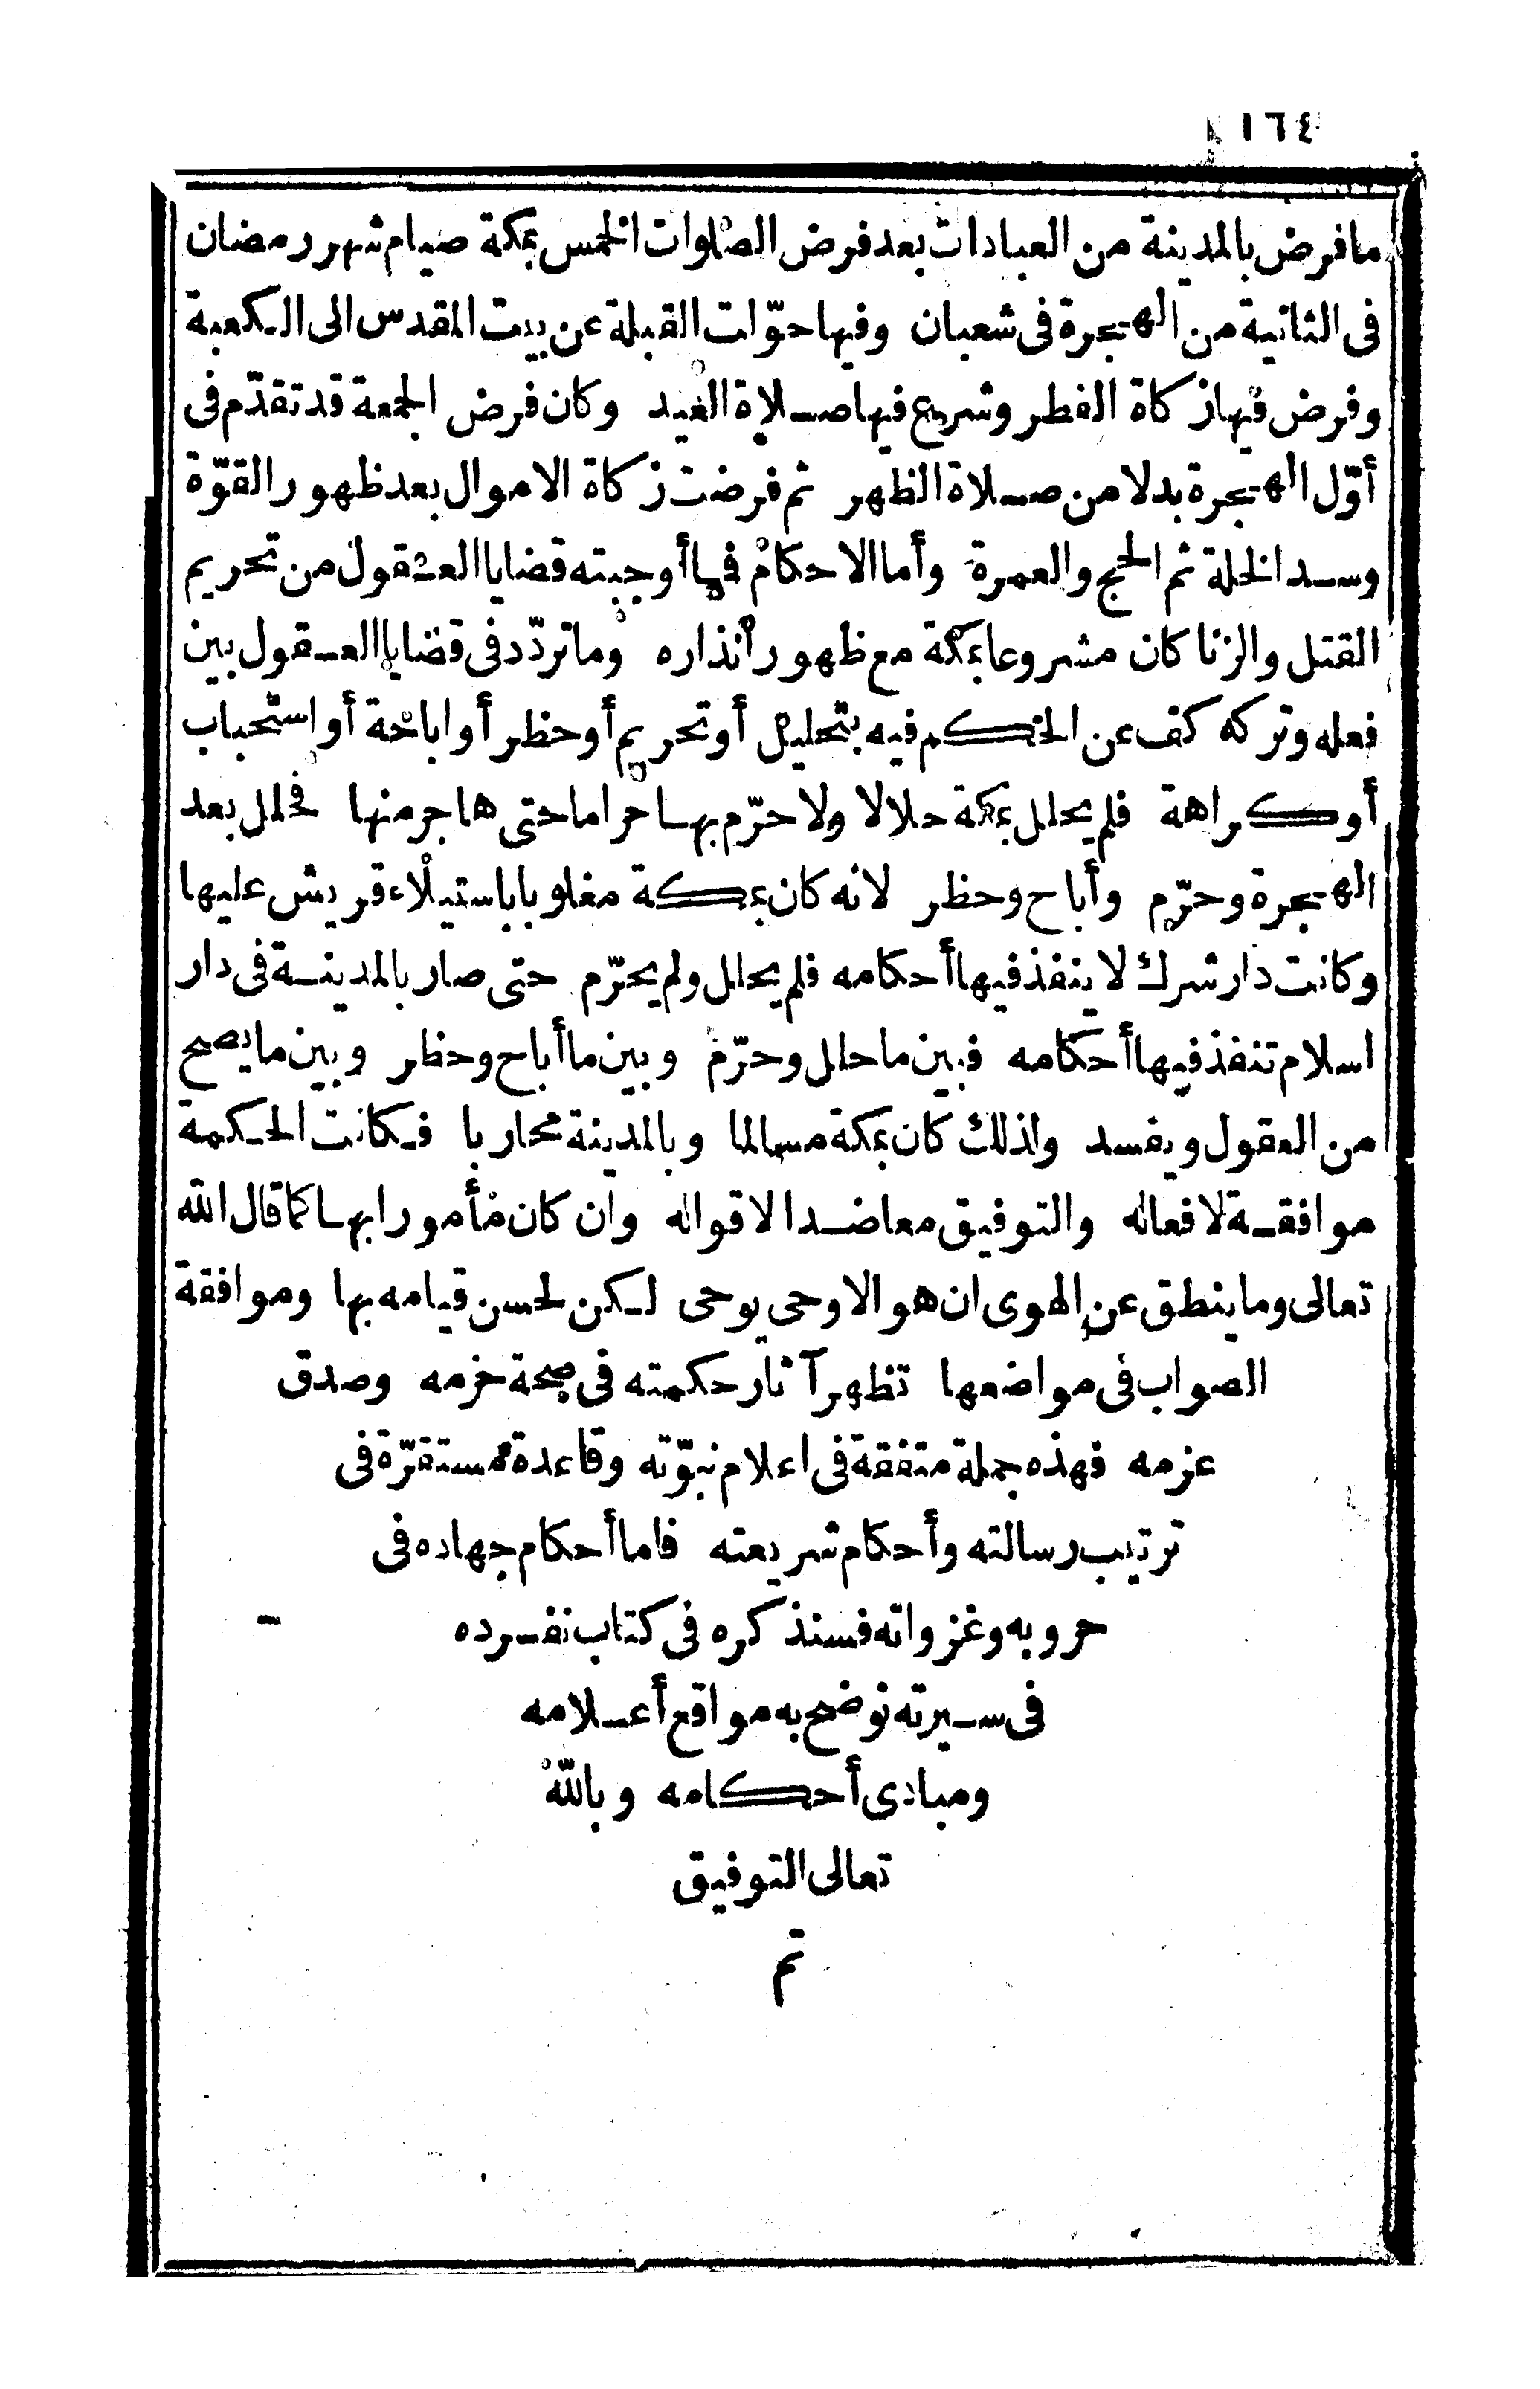 ١٦٤
ما فرض بالمدينة من العبادات بعد فرض الصلوات الخمس بمكة صيام شهر رمضان
فى الثانية من الهجرة فى شعبان وفيها حوّلت القبلة عن بيت المقدس الى الكعبة
وفرض فيها زكاة الفطر وشرع فيها صلاة العيد وكان فرض الجمعة قد تقدّم فى
أوّل الهجرة بدلا من صلاة الظهر ثم فرضت زكاة الاموال بعد ظهور القوّة
وسد الخلة ثم الحج والعمرة وأما الاحكام فما أوجبته قضايا العقول من تحريم
القتل والزنا كان مشروعا بمكة مع ظهور أنذاره وما تردّد فى قضايا العقول بين
فعله وتركه كف عن الحكم فيه بتحليل أو تحريم أو حظر أو اباحة أو استحباب
أو كراهة فلم يحلل بمكة حلالا ولا حرّم بها حراما حتى هاجر منها فحلل بعد
الهجرة وحرّم وأباح وحظر لانه كان بمكة مغلوبا باستيلاء قريش عليها
وكانت دار شرك لا ينفذ فيها أحكامه فلم يحلل ولم يحرّم حتى صار بالمدينة فى دار
اسلام تنفذ فيها أحكامه فبين ما حلل وحرّم وبين ما أباح وحظر وبين ما يصح
من العقول ويفسد ولذلك كان بمكة مسالما وبالمدينة محاربا فكانت الحكمة
موافقة لافعاله والتوفيق معاضدا لاقواله وان كان مأمورا بها كما قال الله
تعالى وما ينطق عن الهوى ان هو الا وحى يوحى لكن لحسن قيامه بها وموافقة
الصواب فى مواضعها تظهر آثار حكمته فى صحة حزمه وصدق
عزمه فهذه جملة متفقة فى اعلام نبوّته وقاعدة مستقرّة فى
ترتيب رسالته وأحكام شريعته فاما أحكام جهاده فى
حروبه وغزواته فسنذكره فى كتاب نفرده
فى سيرته نوضح به مواقع أعلامه
ومبادى أحكامه وبالله
تعالى التوفيق
تم